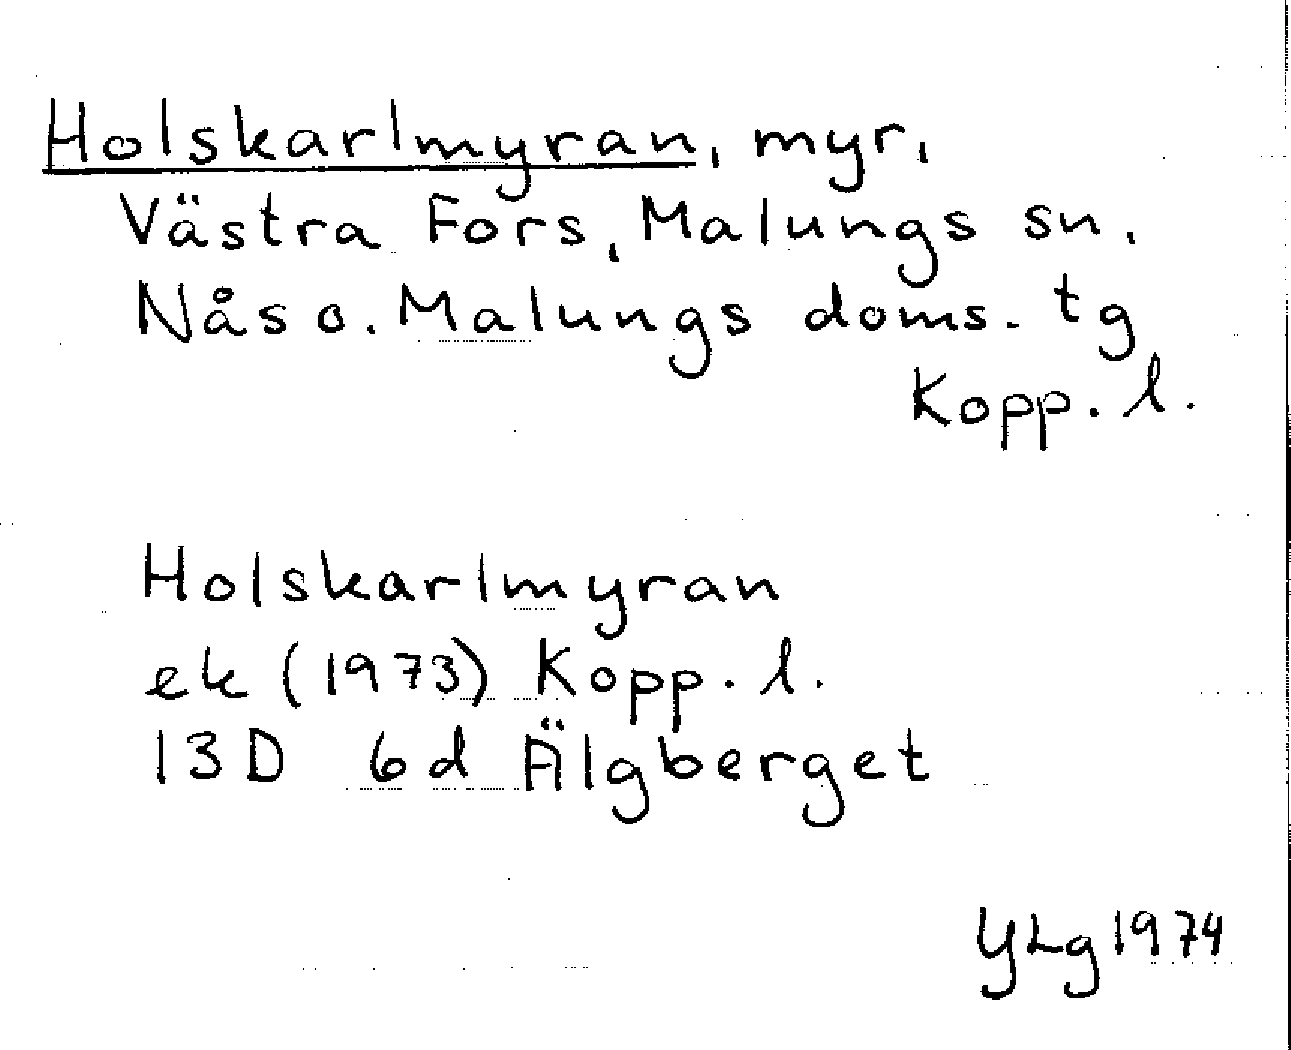 Holskarlmyran, myr,
Västra Fors, Malungs sn.
Nås o. Malungs doms. tg
Kopp. l.
Holskarlmyran
ek (1973) Kopp. l.
13D 6d Älgberget
YLg 1974